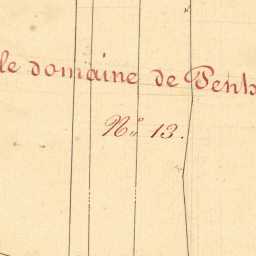 le domaine de Penh
Nº 13.